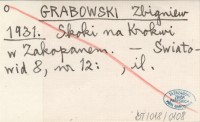 GRABOWSKI Zbigniew
1931. Skoki na Krokwi
w Zakopanem. – Świato-
wid 8, nr 12: , il.